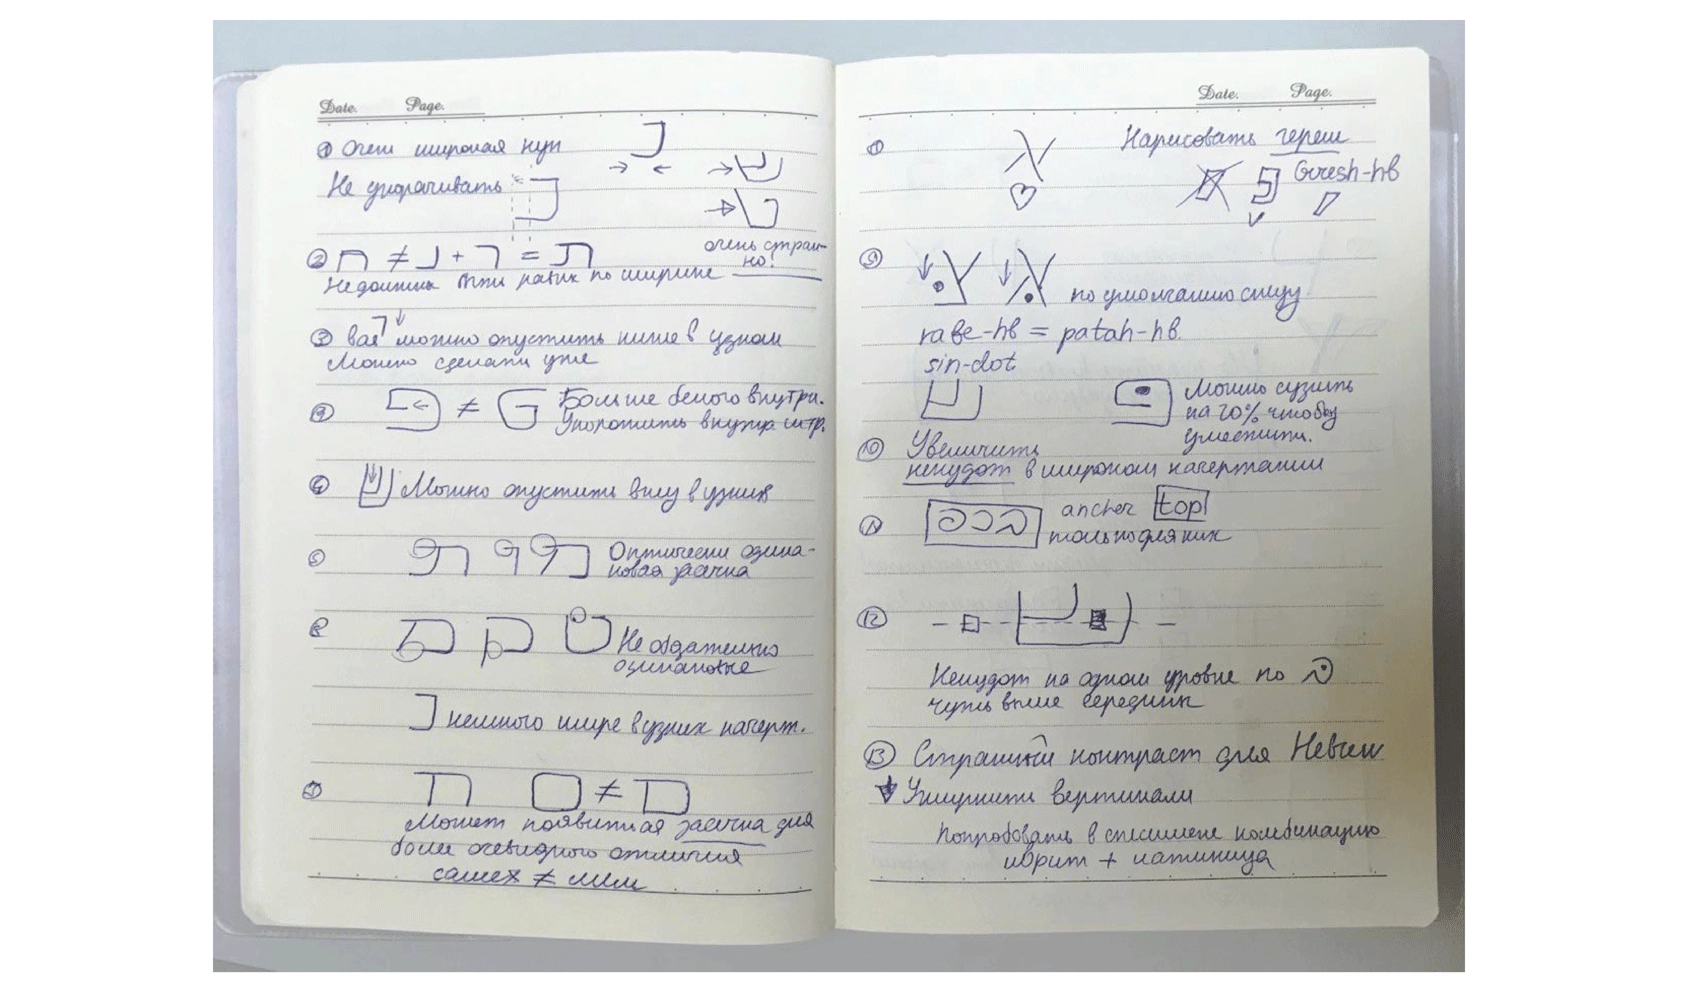 Date. Page.
① Очень широкая нун
Не укорачивать
очень стран-
но!
② ≠ + =
Не должны быть равны по ширине
③ Вав можно опустить ниже в узком
Можно сделать уже
④ ≠ Больше белого внутри.
Укоротить внутр. штр.
Можно опустить вниз в узких
⑤ Оптически одина-
ковая засечка
Не обязательно
одинаковые
немного шире в узких начерт.
≠
Может появиться засечка для
более очевидного отличия
самех ≠ мем
Date. Page.
Нарисовать гереш
Geresh-hb
⑨
по умолчанию снизу
rafe-hb = patah-hb.
sin-dot
Можно сузить
на 20% чтобы
уместить.
⑩ Увеличить
неккудот в широком начертании
⑪ ancher top
только для них
⑫
Неккудот на одном уровне по
чуть выше середины
⑬ Страшный контраст для Hebrew
Ужирнить вертикали
Попробовать в спесимене комбинацию
иврит + латиница